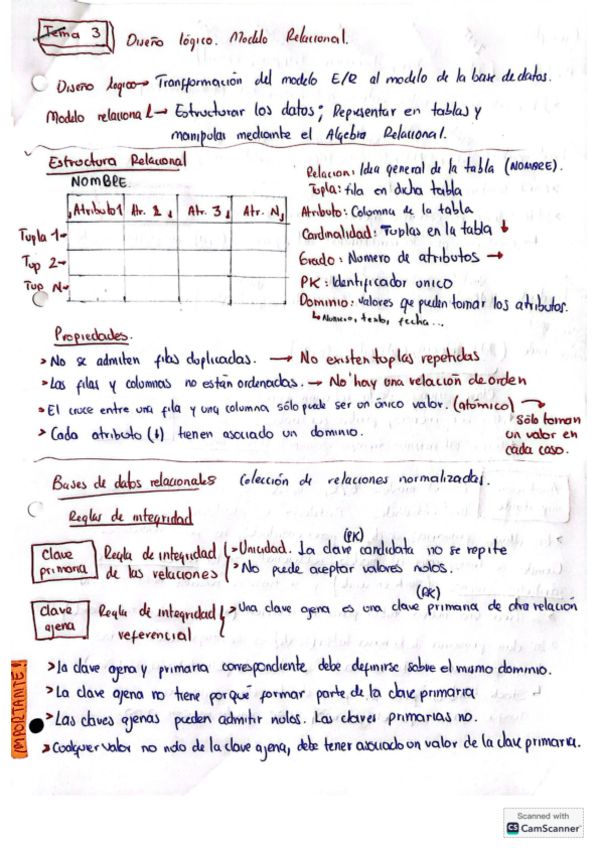 Tema 3 Diseño lógico. Modelo Relacional.
Diseño logico → Transformación del modelo E/R al modelo de la base de datos.
Modelo relacional → Estructurar los datos; Representar en tablas y
manipular mediante el Algebra Relacional.
Estructura Relacional
NOMBRE
Atributo 1 Atr. 2 Atr. 3 Atr. N
Tupla 1
Tup 2
Tup N
Relacion: Idea general de la tabla (NOMBRE).
Tupla: fila en dicha tabla
Atributo: Columna de la tabla
Cardinalidad: Tuplas en la tabla ↓
Grado: Numero de atributos →
PK: Identificador unico
Dominio: valores que pueden tomar los atributos.
↳ Numero, texto, fecha...
Propiedades.
> No se admiten filas duplicadas. → No existen tuplas repetidas
> Las filas y columnas no están ordenadas. → No hay una relación de orden
> El cruce entre una fila y una columna, sólo puede ser un único valor. (atómico) → Sólo toman
un valor en
cada caso.
> Cada atributo (↓) tienen asociado un dominio.
Bases de datos relacionales Colección de relaciones normalizadas.
Reglas de integridad
Clave primaria Regla de integridad de las relaciones
(PK)
> Unicidad. La clave candidata no se repite
> No puede aceptar valores nulos.
Clave ajena Regla de integridad referencial
> Una clave ajena es una clave primaria de otra relación
IMPORTANTE!
> La clave ajena y primaria correspondiente debe definirse sobre el mismo dominio.
> La clave ajena no tiene porqué formar parte de la clave primaria
> Las claves ajenas pueden admitir nulos. Las claves primarias no.
> Cualquier valor no nulo de la clave ajena, debe tener asociado un valor de la clave primaria.
Scanned with
CS CamScanner